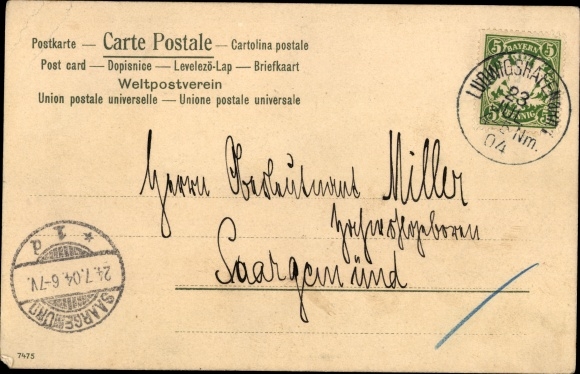 Postkarte — Carte Postale — Cartolina postale
Post card — Dopisnice — Levelező-Lap — Briefkaart
Weltpostverein
Union postale universelle — Unione postale universale
5 BAYERN 5
PFENNIG
LUDWIGSHAFEN
23
JUL
Nm.
04
Herrn Oberleutnant Miller
Hochwohlgeboren
Saargemünd
1 d
24.7.04.6-7V.
SAARGEMÜND
7475